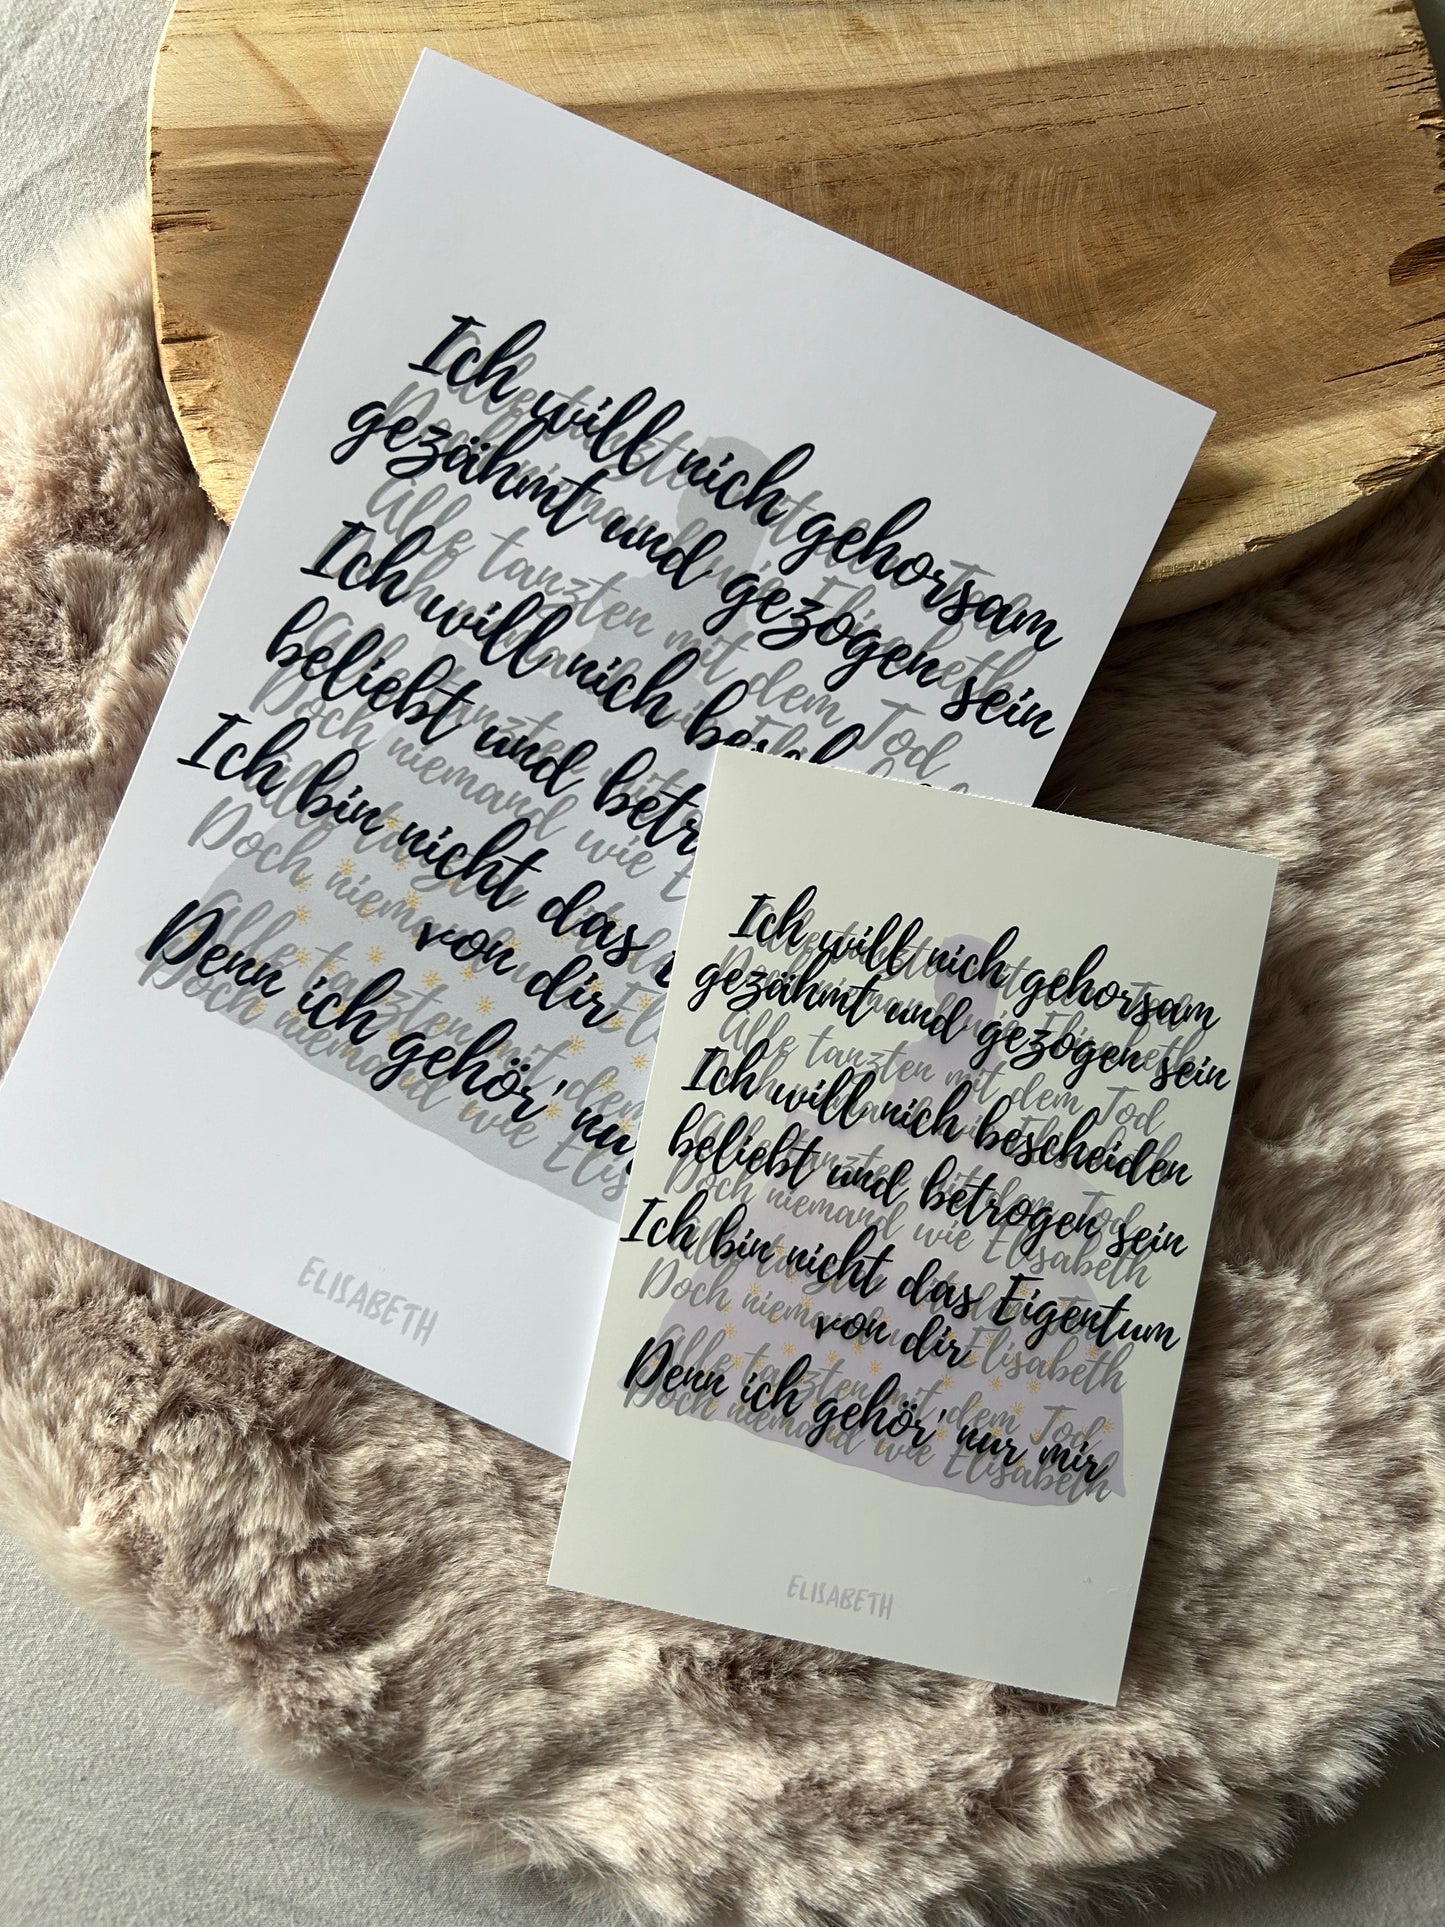 Ich will nich gehorsam
gezähmt und gezogen sein
Ich will nich
beliebt und
Ich bin nicht das
von dir
Denn ich gehör' nur
Alle tanzten mit dem Tod
Doch niemand wie Elisabeth
Alle tanzten mit dem Tod
Doch niemand wie
Alle tanzten mit
Doch niemand wie
Alle tanzten
Doch niemand
Alle tanzten mit dem
Doch niemand wie
ELISABETH
Ich will nich gehorsam
gezähmt und gezogen sein
Ich will nich bescheiden
beliebt und betrogen sein
Ich bin nicht das Eigentum
von dir
Denn ich gehör' nur mir
Alle tanzten mit dem Tod
Doch niemand wie Elisabeth
Alle tanzten mit dem Tod
Doch niemand wie Elisabeth
Alle tanzten mit dem Tod
Doch niemand wie Elisabeth
Alle tanzten mit dem Tod
Doch niemand wie Elisabeth
Alle tanzten mit dem Tod
Doch niemand wie Elisabeth
ELISABETH